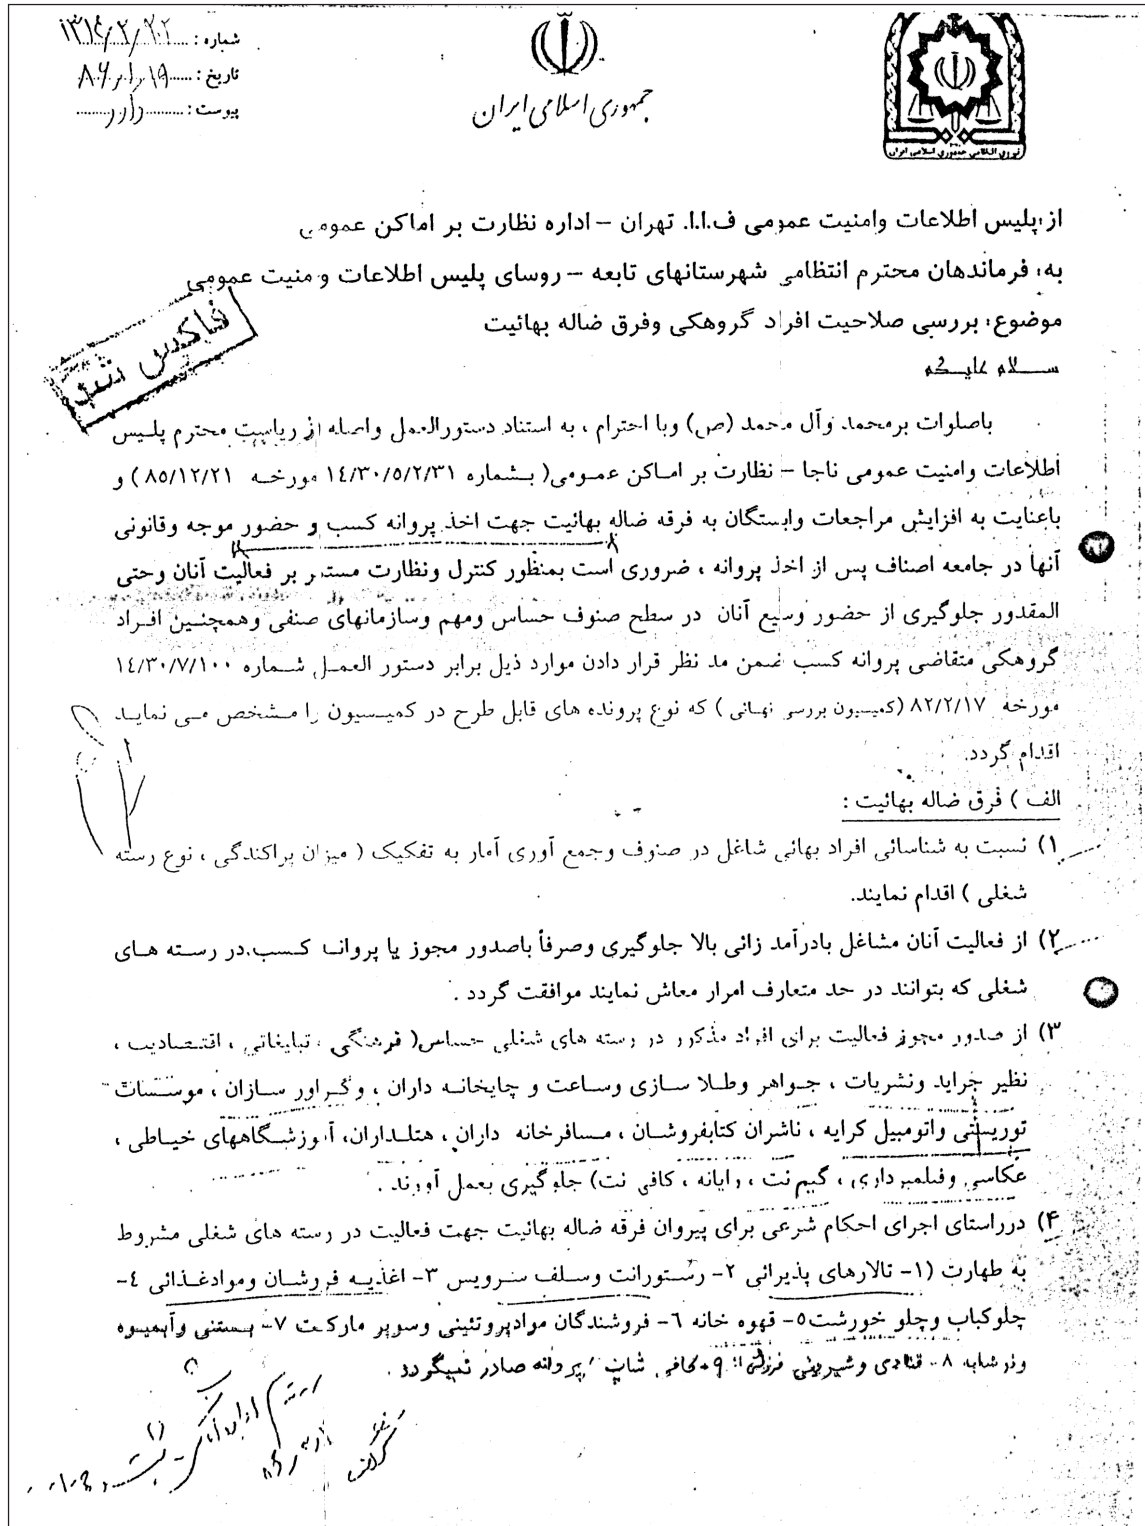 شماره :
تاریخ : ۸۶/۱/۱۹
پیوست : دارد
جمهوری اسلامی ایران
نیروی انتظامی جمهوری اسلامی ایران
از:پلیس اطلاعات وامنیت عمومی ف.ا.ا. تهران – اداره نظارت بر اماکن عمومی
به: فرماندهان محترم انتظامی شهرستانهای تابعه – روسای پلیس اطلاعات و منیت عمومی
موضوع: بررسی صلاحیت افراد گروهکی وفرق ضاله بهائیت
فاکس شد
سـلام علیـکم
باصلوات برمحمد وآل محمد (ص) وبا احترام ، به استناد دستورالعمل واصله از ریاست محترم پلیس
اطلاعات وامنیت عمومی ناجا – نظارت بر اماکن عمومی( بشماره ۱٤/۳۰/٥/۲/۳۱ مورخه ۸٥/۱۲/۲۱ ) و
باعنایت به افزایش مراجعات وابستگان به فرقه ضاله بهائیت جهت اخذ پروانه کسب و حضور موجه وقانونی
آنها در جامعه اصناف پس از اخذ پروانه ، ضروری است بمنظور کنترل ونظارت مستمر بر فعالیت آنان وحتی
المقدور جلوگیری از حضور وسیع آنان در سطح صنوف حساس ومهم وسازمانهای صنفی وهمچنین افراد
گروهکی متقاضی پروانه کسب ضمن مد نظر قرار دادن موارد ذیل برابر دستور العمل شماره ۱٤/۳۰/۷/۱۰۰
مورخه ۸۲/۲/۱۷ (کمیسیون بررسی نهائی ) که نوع پرونده های قابل طرح در کمیسیون را مشخص می نماید
اقدام گردد.
الف ) فرق ضاله بهائیت :
۱) نسبت به شناسائی افراد بهائی شاغل در صنوف وجمع آوری آمار به تفکیک ( میزان پراکندگی ، نوع رسته
شغلی ) اقدام نمایند.
۲) از فعالیت آنان مشاغل بادرآمد زائی بالا جلوگیری وصرفاً باصدور مجوز یا پروانه کسب.در رسته های
شغلی که بتوانند در حد متعارف امرار معاش نمایند موافقت گردد .
۳) از صدور مجوز فعالیت برای افراد مذکور در رسته های شغلی حساس( فرهنگی ، تبلیغاتی ، اقتصادیت ،
نظیر جراید ونشریات ، جواهر وطلا سازی وساعت و چاپخانه داران ، وگراور سازان ، موسسات
توریستی واتومبیل کرایه ، ناشران کتابفروشان ، مسافرخانه داران ، هتلداران، آموزشگاههای خیاطی ،
عکاسی وفیلمبرداری ، گیم نت ، رایانه ، کافی نت) جلوگیری بعمل آورند .
۴) درراستای اجرای احکام شرعی برای پیروان فرقه ضاله بهائیت جهت فعالیت در رسته های شغلی مشروط
به طهارت (۱- تالارهای پذیرائی ۲- رستورانت وسلف سرویس ۳- اغذیه فروشان وموادغذائی ٤-
چلوکباب وچلو خورشت٥- قهوه خانه ٦- فروشندگان موادپروتئینی وسوپر مارکت ۷- بستنی وآبمیوه
ونوشابه ۸- قنادی وشیرینی فروشی ۹-کافی شاپ ) پروانه صادر نمیگردد .